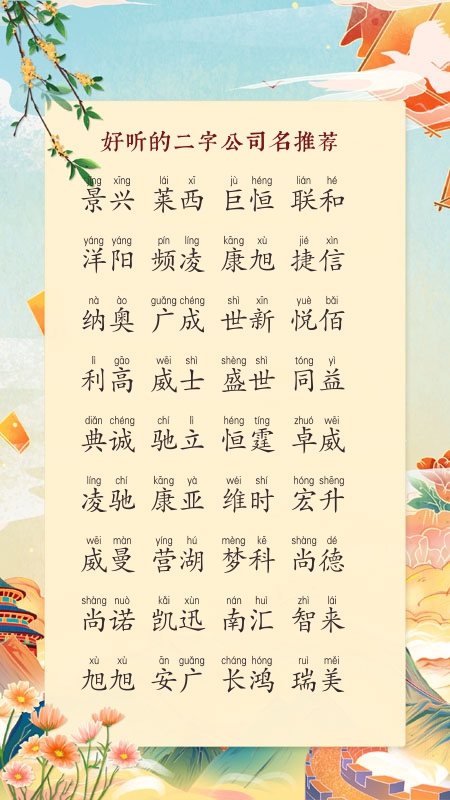 好听的二字公司名推荐
jǐng xīng lái xī jù héng lián hé
景兴 莱西 巨恒 联和
yáng yáng pín líng kāng xù jié xìn
洋阳 频凌 康旭 捷信
nà ào guǎng chéng shì xīn yuè bǎi
纳奥 广成 世新 悦佰
lì gāo wēi shì shèng shì tóng yì
利高 威士 盛世 同益
diǎn chéng chí lì héng tíng zhuó wēi
典诚 驰立 恒霆 卓威
líng chí kāng yà wéi shí hóng shēng
凌驰 康亚 维时 宏升
wēi màn yíng hú mèng kē shàng dé
威曼 营湖 梦科 尚德
shàng nuò kǎi xùn nán huì zhì lái
尚诺 凯迅 南汇 智来
xù xù ān guǎng cháng hóng ruì měi
旭旭 安广 长鸿 瑞美